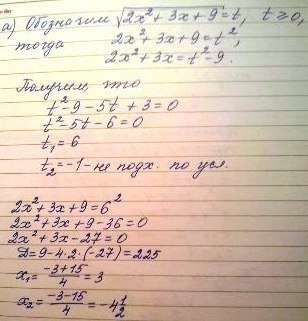 а) Обозначим √2x²+3x+9 = t, t≥0,
тогда 2x²+3x+9=t²,
2x²+3x=t²-9.
Получим, что
t²-9-5t+3=0
t²-5t-6=0
t₁=6
t₂=-1-не подх. по усл.
2x²+3x+9=6²
2x²+3x+9-36=0
2x²+3x-27=0
D=9-4·2·(-27)=225
x₁=(-3+15)/4=3
x₂=(-3-15)/4=-4 1/2